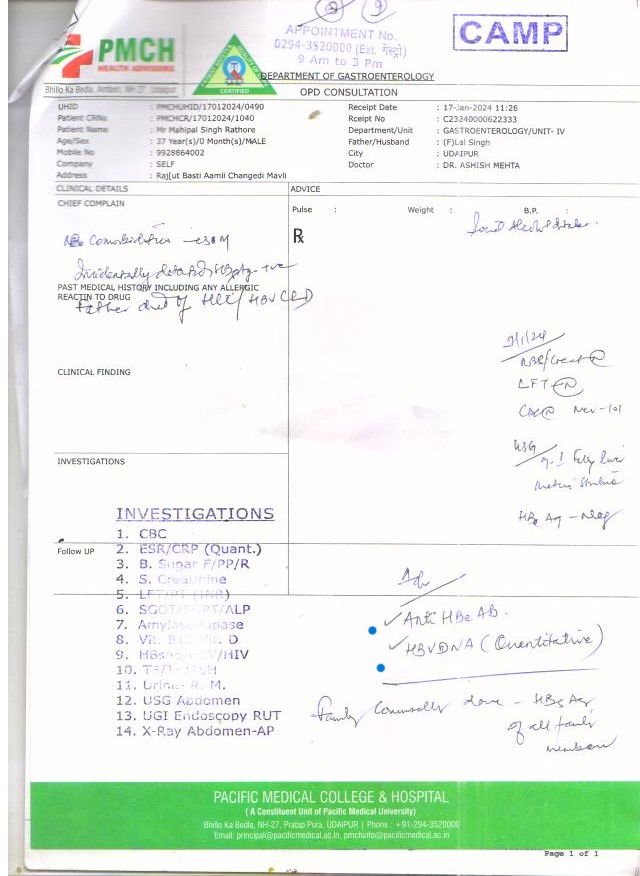 APPOINTMENT No.
0294-3520000 (Ext. गेस्ट्रो)
9 Am to 3 Pm
CAMP
PMCH
HEALTH ADVISORS
CERTIFIED
Bhillo Ka Bedla, Amberi, NH-27, Udaipur
DEPARTMENT OF GASTROENTEROLOGY
OPD CONSULTATION
UHID : PMCHUHID/17012024/0490 Receipt Date : 17-Jan-2024 11:26
Patient CRNo : PMCHCR/17012024/1040 Rceipt No : C23240000622333
Patient Name : Mr Mahipal Singh Rathore Department/Unit : GASTROENTEROLOGY/UNIT- IV
Age/Sex : 37 Year(s)/0 Month(s)/MALE Father/Husband : (F)Lal Singh
Mobile No : 9928864002 City : UDAIPUR
Company : SELF Doctor : DR. ASHISH MEHTA
Address : Raj[ut Basti Aamli Changedi Mavli
CLINICAL DETAILS ADVICE
CHIEF COMPLAIN Pulse : Weight : B.P. :
Rx
No Comorbidities
Incidentally detected +ve
PAST MEDICAL HISTORY INCLUDING ANY ALLERGIC
REACTIN TO DRUG
Father died of HCC/HBV CLD
LFT N
CLINICAL FINDING
USG
HBe Ag - Neg
INVESTIGATIONS
Follow UP
INVESTIGATIONS
1. CBC
2. ESR/CRP (Quant.)
3. B. Sugar F/PP/R
4. S. Creatinine
5. LFT/PT (INR)
6. SGOT/SGPT/ALP
7. Amylase/Lipase
8. Vit. B12/Vit. D
9. HBsAg/HCV/HIV
10. T3/T4/TSH
11. Urine- R. M.
12. USG Abdomen
13. UGI Endoscopy RUT
14. X-Ray Abdomen-AP
Adv
Anti HBe AB.
HBVDNA (Quantitative)
Family Counselling done - HBsAg
of all family
members
PACIFIC MEDICAL COLLEGE & HOSPITAL
( A Constituent Unit of Pacific Medical University)
Bhillo Ka Bedla, NH-27, Pratap Pura, UDAIPUR | Phone : +91-294-3520000
Email: principal@pacificmedical.ac.in, pmchinfo@pacificmedical.ac.in
Page 1 of 1